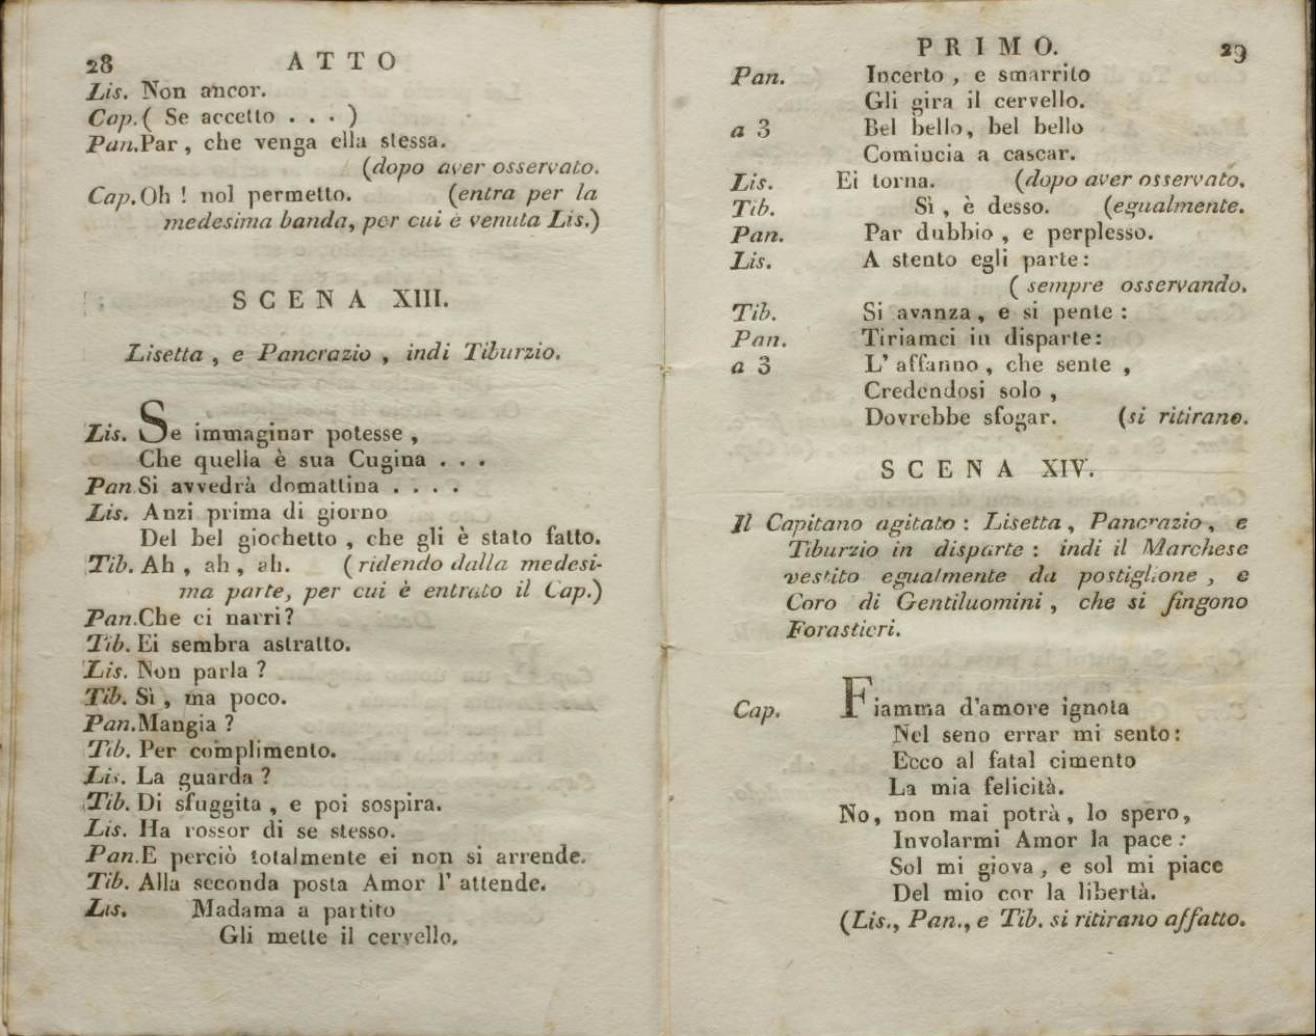 28 ATTO
Lis. Non ancor.
Cap.( Se accetto . . . )
Pan.Par , che venga ella stessa.
(dopo aver osservato.
Cap.Oh ! nol permetto. (entra per la
medesima banda, per cui è venuta Lis.)
SCENA XIII.
Lisetta , e Pancrazio , indi Tiburzio.
Lis. Se immaginar potesse ,
Che quella è sua Cugina . . .
Pan.Si avvedrà domattina . . . .
Lis. Anzi prima di giorno
Del bel giochetto , che gli è stato fatto.
Tib. Ah , ah , ah. ( ridendo dalla medesi-
ma parte, per cui è entrato il Cap.)
Pan.Che ci narri?
Tib. Ei sembra astratto.
Lis. Non parla ?
Tib. Sì , ma poco.
Pan.Mangia ?
Tib. Per complimento.
Lis. La guarda ?
Tib. Di sfuggita , e poi sospira.
Lis. Ha rossor di se stesso.
Pan.E perciò totalmente ei non si arrende.
Tib. Alla seconda posta Amor l' attende.
Lis. Madama a partito
Gli mette il cervello.
PRIMO. 29
Pan. Incerto , e smarrito
Gli gira il cervello.
a 3 Bel bello, bel bello
Comincia a cascar.
Lis. Ei torna. (dopo aver osservato.
Tib. Sì , è desso. (egualmente.
Pan. Par dubbio , e perplesso.
Lis. A stento egli parte:
( sempre osservando.
Tib. Si avanza , e si pente :
Pan. Tiriamci in disparte:
a 3 L' affanno , che sente ,
Credendosi solo ,
Dovrebbe sfogar. (si ritirano.
SCENA XIV.
Il Capitano agitato : Lisetta , Pancrazio , e
Tiburzio in disparte : indi il Marchese
vestito egualmente da postiglione , e
Coro di Gentiluomini , che si fingono
Forastieri.
Cap. Fiamma d'amore ignota
Nel seno errar mi sento:
Ecco al fatal cimento
La mia felicità.
No, non mai potrà, lo spero,
Involarmi Amor la pace :
Sol mi giova , e sol mi piace
Del mio cor la libertà.
(Lis., Pan., e Tib. si ritirano affatto.